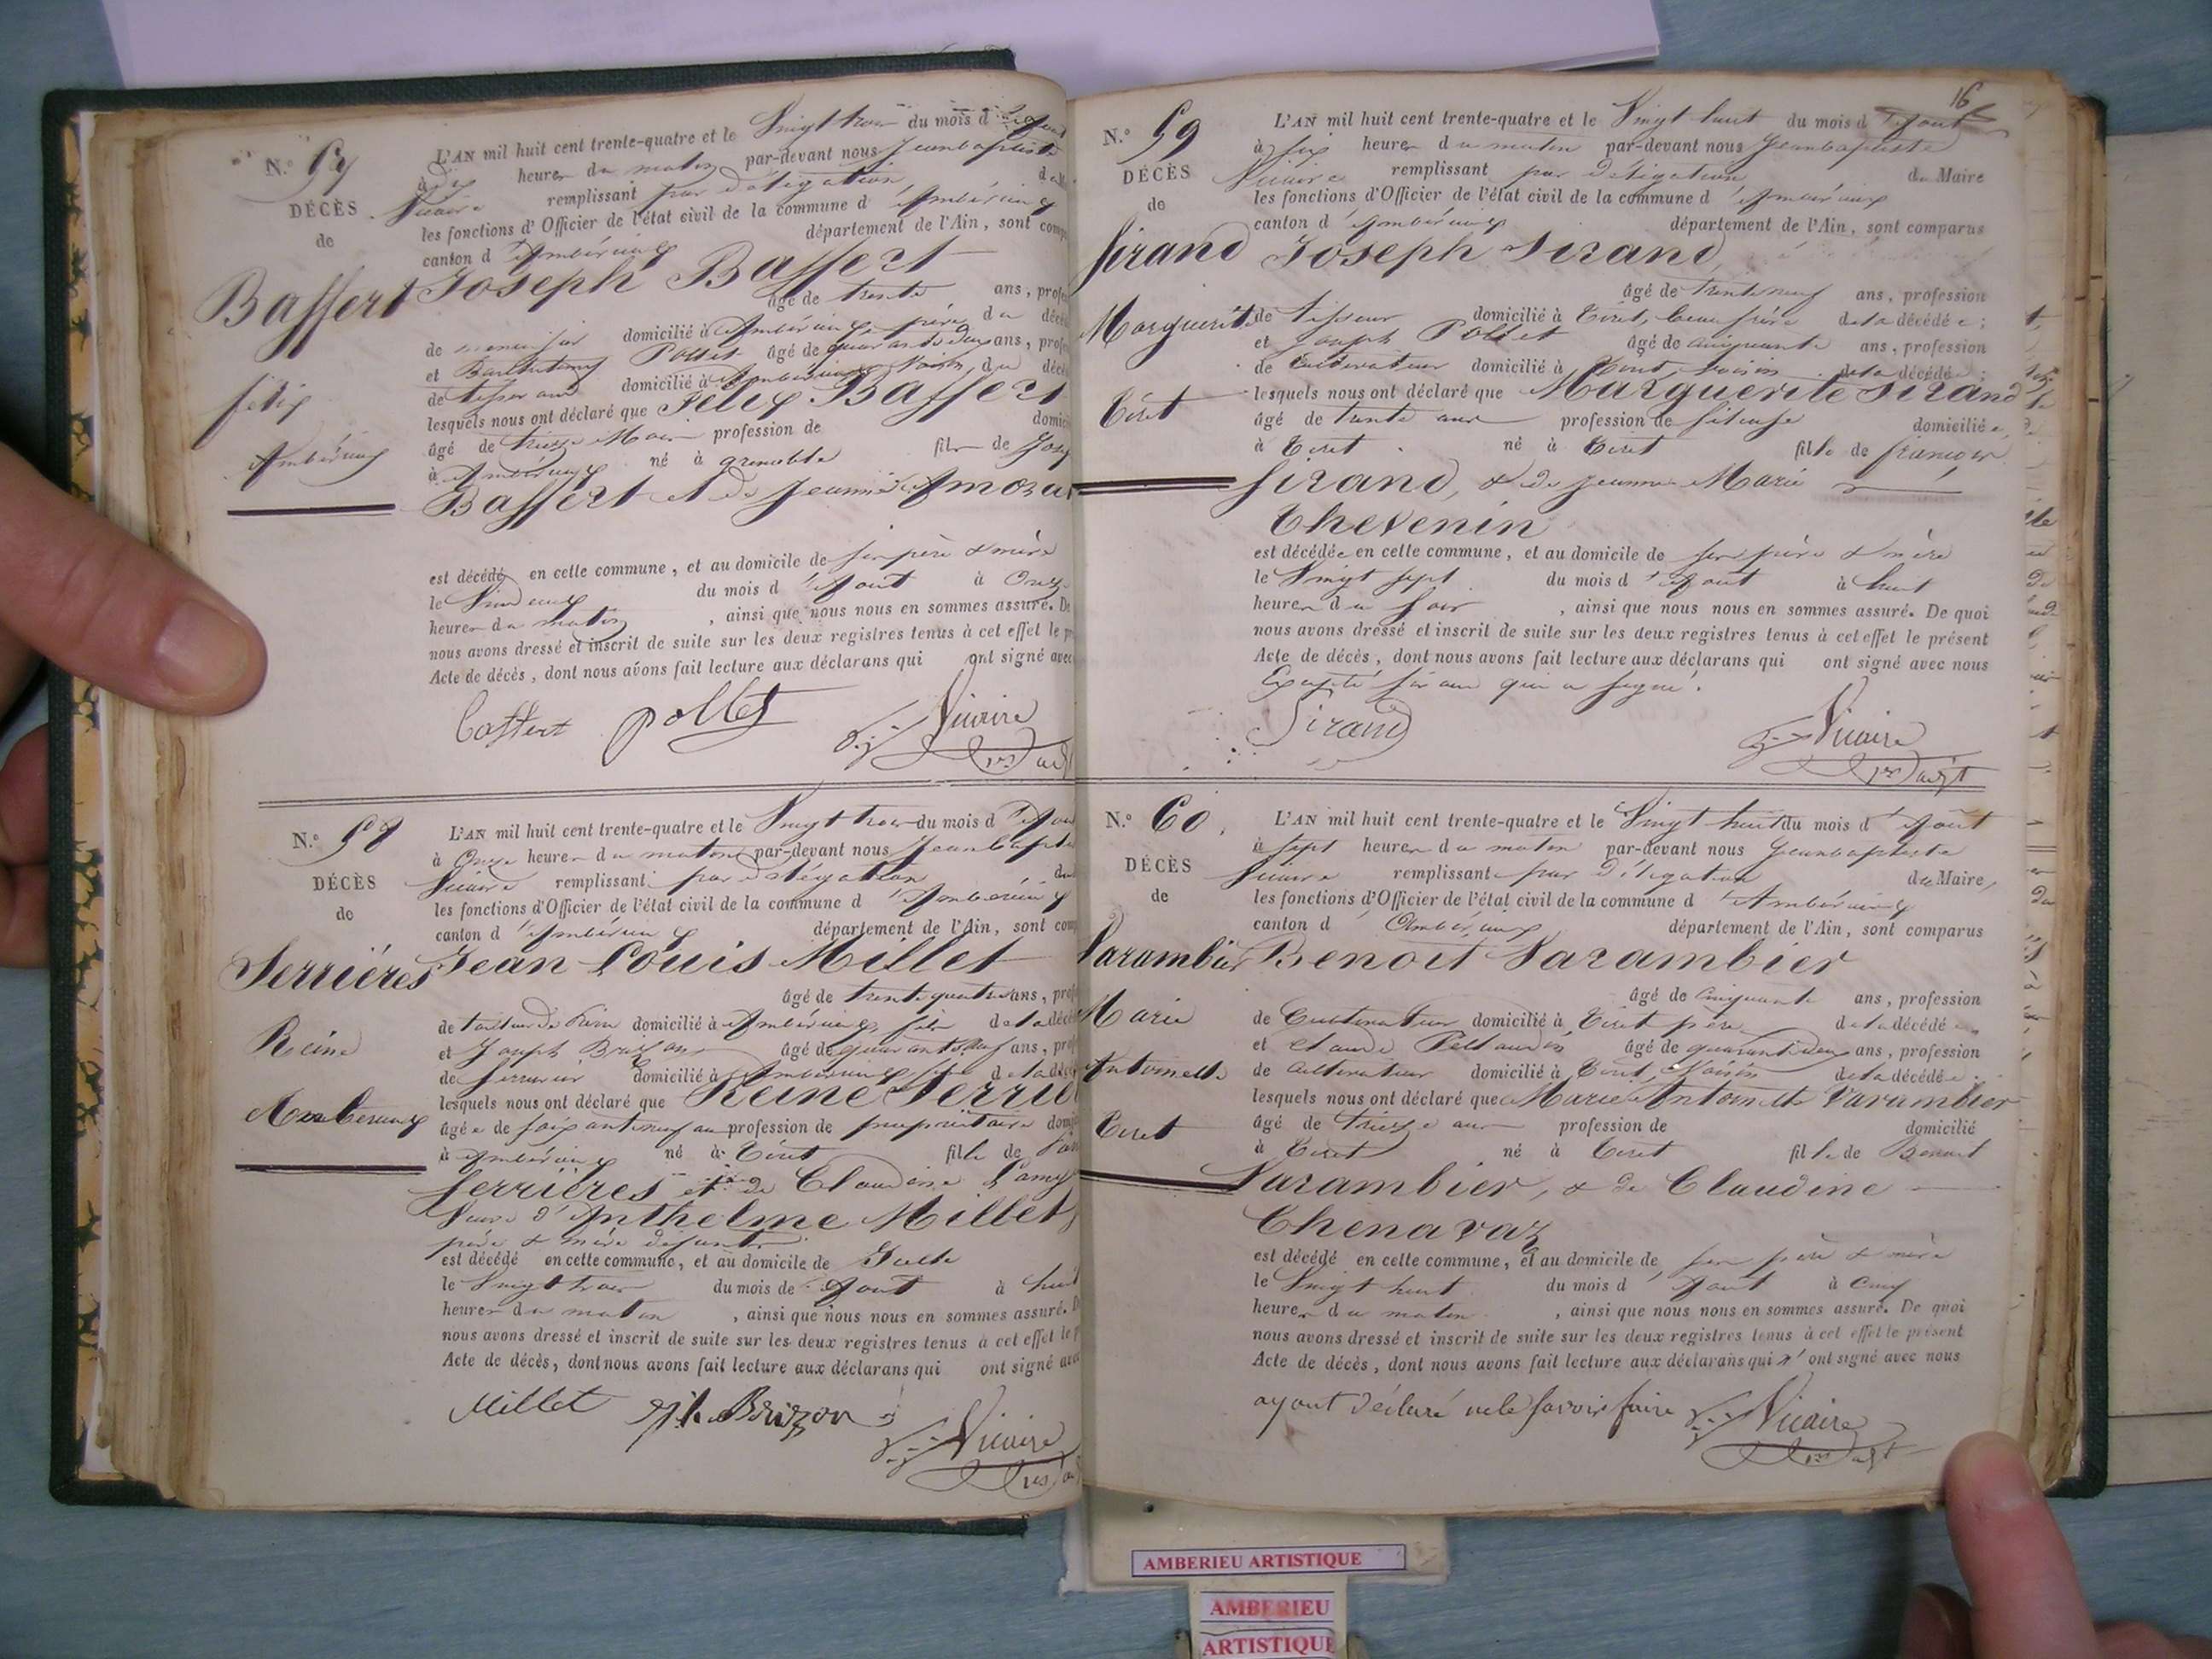 N.º 57
DÉCÈS
de
Baffert
félix
Ambérieux
L'AN mil huit cent trente-quatre et le Vingt trois du mois d'Aout
à dix heures du matin par-devant nous Jeanbaptiste
Vicaire remplissant par délégation du
les fonctions d'Officier de l'état civil de la commune d'Ambérieux
canton d'Ambérieux département de l'Ain, sont comp
Joseph Baffert
âgé de trente ans, prof
de menuisier domicilié à Ambérieux, père du décé
et Barthelemy Pollet âgé de quarante deux ans, prof
de tisserand domicilié à Ambérieux Voisin du décé
lesquels nous ont déclaré que Félix Baffert
âgé de treize Mois profession de domici
à Ambérieux né à grenoble fils de Jos
Baffert et de Jeanne
est décédé en cette commune, et au domicile de ses père & mère
le Vindeux du mois d'Aout à Onze
heures du matin, ainsi que nous nous en sommes assuré. De
nous avons dressé et inscrit de suite sur les deux registres tenus à cet effet le pr
Acte de décès, dont nous avons fait lecture aux déclarans qui ont signé avec
Baffert pollet Vicaire
N.º 58
DÉCÈS
de
Serrières
Reine
Amberieux
L'AN mil huit cent trente-quatre et le Vingt trois du mois d'Aou
à Onze heures du matin par-devant nous Jeanbapti
Vicaire remplissant par délégation du
les fonctions d'Officier de l'état civil de la commune d'Ambérieux
canton d'Ambérieux département de l'Ain, sont com
Jean Louis Millet
âgé de trente quatre ans, prof
de domicilié à Ambérieux, fils de la décé
et Joseph Brizon âgé de quarante neuf ans, pro
de serrurier domicilié à Ambérieux de la déc
lesquels nous ont déclaré que Reine Serriè
âgée de soixante neuf ans profession de propriétaire domi
à Ambérieux né à Tiret fille de
Serrières et de Claudine Lamy
Veuve d'Anthelme Millet,
père & mère défunts
est décédé en cette commune, et au domicile de
le Vingt trois du mois de Aout à huit
heures du matin, ainsi que nous nous en sommes assuré. D
nous avons dressé et inscrit de suite sur les deux registres tenus à cet effet le p
Acte de décès, dont nous avons fait lecture aux déclarans qui ont signé avec
Millet Brizon Vicaire
16
N.º 59
DÉCÈS
de
Sirand
Marguerite
Tiret
L'AN mil huit cent trente-quatre et le Vingt huit du mois d'Aout
à six heures du matin par-devant nous Jeanbaptiste
Vicaire remplissant par délégation du Maire
les fonctions d'Officier de l'état civil de la commune d'Ambérieux
canton d'Ambérieux département de l'Ain, sont comparus
Joseph Sirand
âgé de trente neuf ans, profession
de tisseur domicilié à Tiret, beau frère de la décédée;
et Joseph Pollet âgé de cinquante ans, profession
de Cultivateur domicilié à Tiret, voisin de la décédée;
lesquels nous ont déclaré que Marguerite Sirand
âgé de trente ans profession de fileuse domiciliée
à Tiret né à Tiret fille de françois
Sirand, & de Jeanne Marie
Thevenin
est décédée en cette commune, et au domicile de ses père & mère
le Vingt sept du mois d'Aout à huit
heures du soir, ainsi que nous nous en sommes assuré. De quoi
nous avons dressé et inscrit de suite sur les deux registres tenus à cet effet le présent
Acte de décès, dont nous avons fait lecture aux déclarans qui ont signé avec nous
Excepté qui a signé.
Sirand Vicaire
N.º 60
DÉCÈS
de
Varambier
Marie
Antoinette
Tiret
L'AN mil huit cent trente-quatre et le Vingt huit du mois d'Août
à sept heures du matin par-devant nous Jeanbaptiste
Vicaire remplissant par délégation du Maire
les fonctions d'Officier de l'état civil de la commune d'Ambérieux
canton d'Ambérieux département de l'Ain, sont comparus
Benoit Varambier
âgé de cinquante ans, profession
de Cultivateur domicilié à Tiret père de la décédée
et Claude Pellaudin âgé de quarante deux ans, profession
de cultivateur domicilié à Tiret, Voisin de la décédée;
lesquels nous ont déclaré que Marie Antoinette Varambier
âgé de treize ans profession de domicilié
à Tiret né à Tiret fille de Benoit
Varambier, & de Claudine
Chenavaz
est décédé en cette commune, et au domicile de ses père & mère
le Vingt huit du mois d'Aout à cinq
heures du matin, ainsi que nous nous en sommes assuré. De quoi
nous avons dressé et inscrit de suite sur les deux registres tenus à cet effet le présent
Acte de décès, dont nous avons fait lecture aux déclarans qui n'ont signé avec nous
ayant déclaré ne le savoir faire Vicaire
AMBERIEU ARTISTIQUE
AMBERIEU
ARTISTIQUE